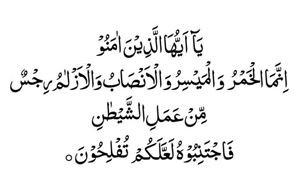 يَآ اَيُّهَا الَّذِيْنَ اٰمَنُوْ
اِنَّمَا الْخَمْرُ وَالْمَيْسِرُ وَالْاَنْصَابُ وَالْاَزْلٰمُ رِجْسٌ
مِّنْ عَمَلِ الشَّيْطٰنِ
فَاجْتَنِبُوْهُ لَعَلَّكُمْ تُفْلِحُوْنَ ○